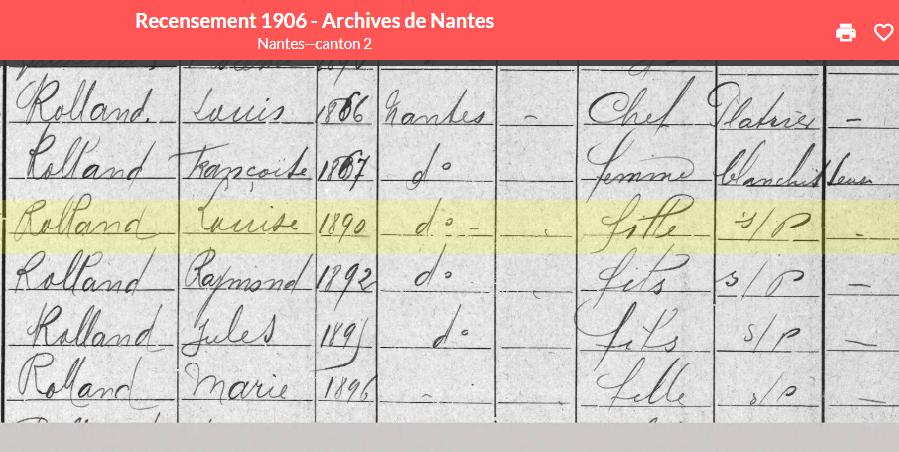 Recensement 1906 - Archives de Nantes
Nantes--canton 2
Rolland. Louis 1866 Nantes - Chef Platrier -
Rolland Françoise 1867 d° femme blanchisseuse
Rolland Louise 1890 d° - fille s/P -
Rolland Raymond 1892 d° fils s/P -
Rolland Jules 1895 d° fils s/P -
Rolland Marie 1896 - fille s/P -